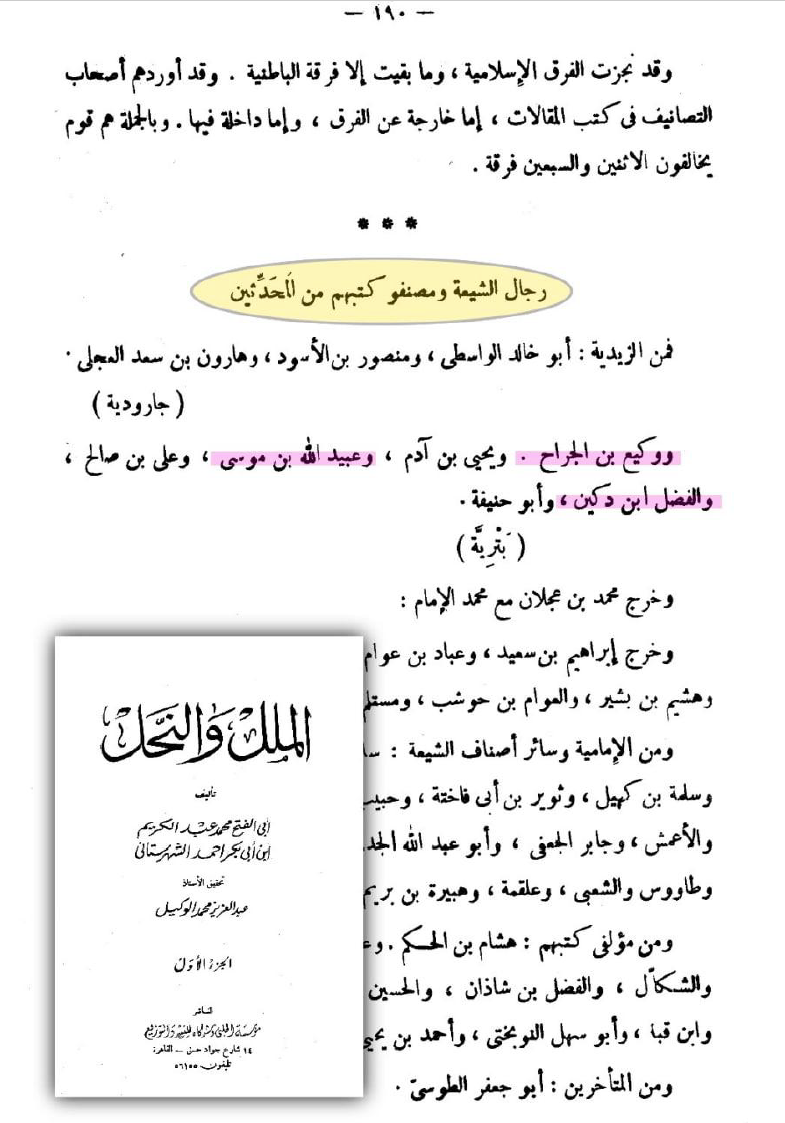 — ١٩٠ —
وقد نجزت الفرق الإسلامية ، وما بقيت إلا فرقة الباطنية . وقد أوردهم أصحاب
التصانيف فى كتب المقالات ، إما خارجة عن الفرق ، وإما داخلة فيها . وبالجملة هم قوم
يخالفون الاثنين والسبعين فرقة .
* * *
رجال الشيعة ومصنفو كتبهم من المُحَدِّثين
فمن الزيدية : أبو خالد الواسطى ، ومنصور بن الأسود ، وهارون بن سعد العجلى .
( جارودية )
ووكيع بن الجراح . ويحيى بن آدم ، وعبيد الله بن موسى ، وعلى بن صالح ،
والفضل ابن دكين ، وأبو حنيفة .
( بَتْرِيَّة )
وخرج محمد بن عجلان مع محمد الإمام :
وخرج إبراهيم بن سعيد ، وعباد بن عوام
وهشيم بن بشير ، والعوام بن حوشب ، ومستلم
ومن الإمامية وسائر أصناف الشيعة :
وسلمة بن كهيل ، وثوير بن أبى فاختة ، وحبيب
والأعمش ، وجابر الجعفى ، وأبو عبد الله الجد
وطاووس والشعبى ، وعلقمة ، وهبيرة بن بريم
ومن مؤلفى كتبهم : هشام بن الحكم .
والشكاّل ، والفضل بن شاذان ، والحسين
وابن قبا ، وأبو سهل النوبختى ، وأحمد بن يحيى
ومن المتأخرين : أبو جعفر الطوسىّ .
الملل والنحل
تأليف
أبى الفتح محمد عبد الكريم
ابن أبى بكر احمد الشهرستانى
تحقيق الأستاذ
عبد العزيز محمد الوكيل
الجزء الأول
الناشر
مؤسسة الحلبى وشركاه للنشر والتوزيع
١٤ شارع جواد حسنى – القاهرة
تليفون ٥٦١٥٥